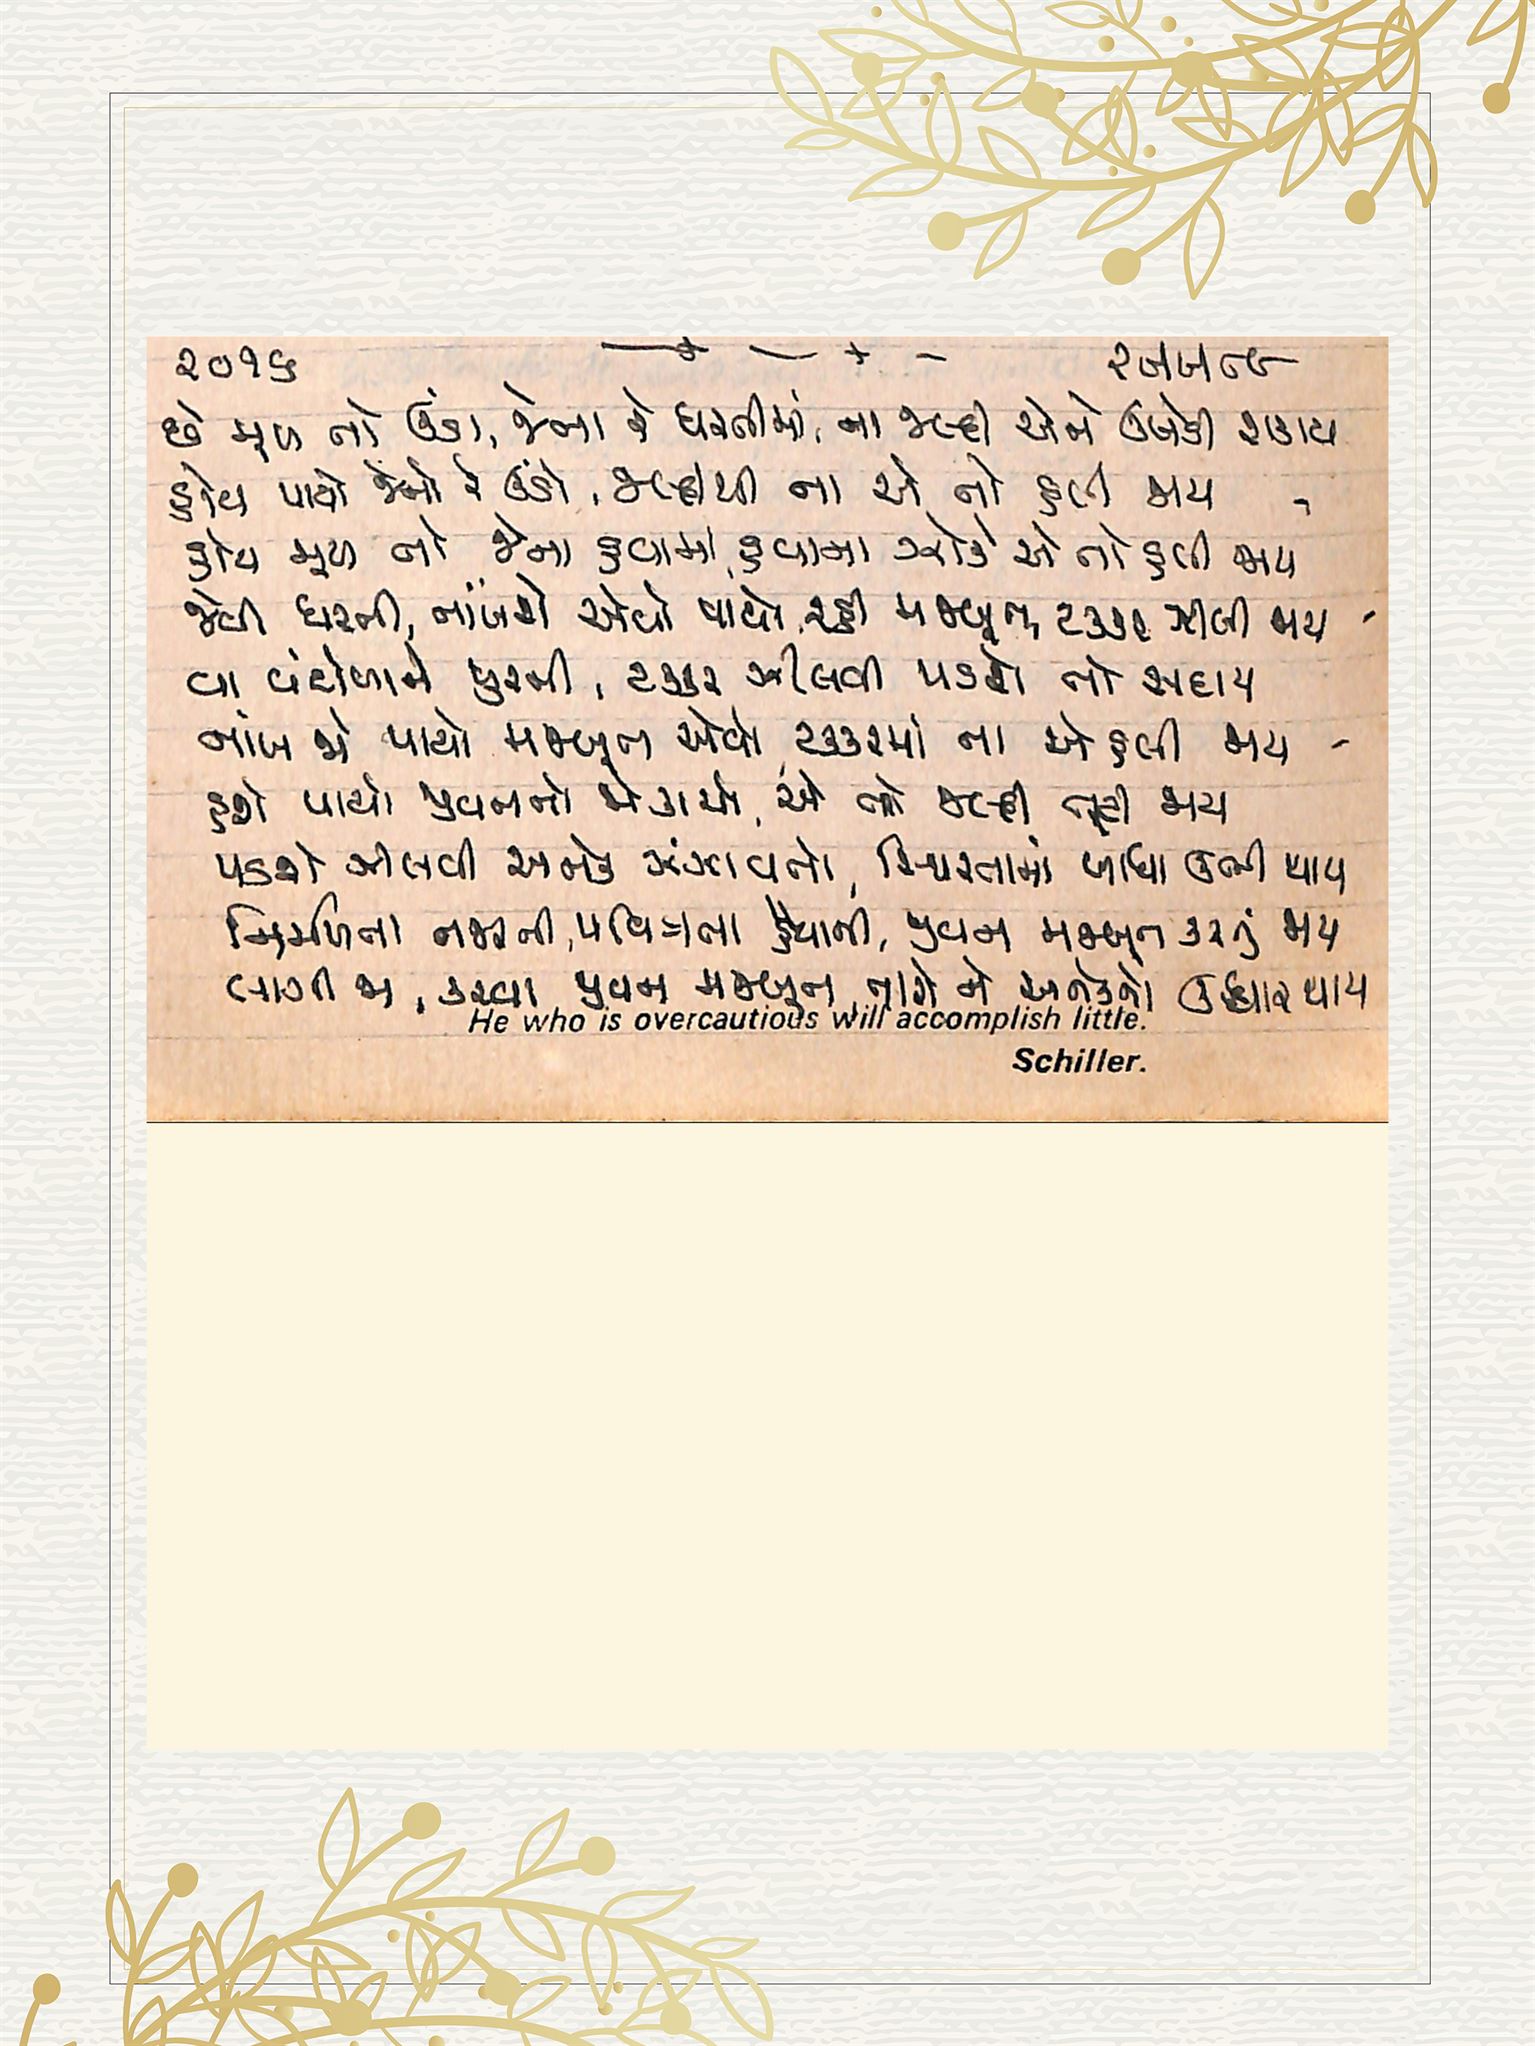 ૨૦૧૬
છે મૂળ તો ઉંડા, જેના રે ધરતીમાં, ના જલ્દી એને ઉખેડી શકાય
હોય પાયો જેનો રે ઉંડો, જલ્દીથી ના એ તો હલી જાય
હોય મૂળ તો જેના હવામાં, હવાના ઝોકે એ તો હલી જાય
જેવી ધરતી, નાંખશે એવો પાયો, રહી મજબૂત, ટક્કર ઝીલી જાય
વા વંટોળાને ધુરની, ટક્કર ઝીલવી પડશે તો સદાય
નાંખ જે પાયો મજબૂત એવો, ટક્કરમાં ના એ હલી જાય
હશે પાયો પુવનનો જો કાચો, એ તો જલ્દી તૂટી જાય
પડશે ઝીલવી અનેક ઝંઝાવતો, સ્થિરતામાં બાધા ઉભી થાય
નિર્મળતા નજરની, પવિત્રતા હૈયાની, પુવન મજબૂત કરતું જાય
લાગી જા, કરવા પુવન મજબૂત, તારો ને અનેકનો ઉધ્ધાર થાય
He who is overcautious will accomplish little.
Schiller.